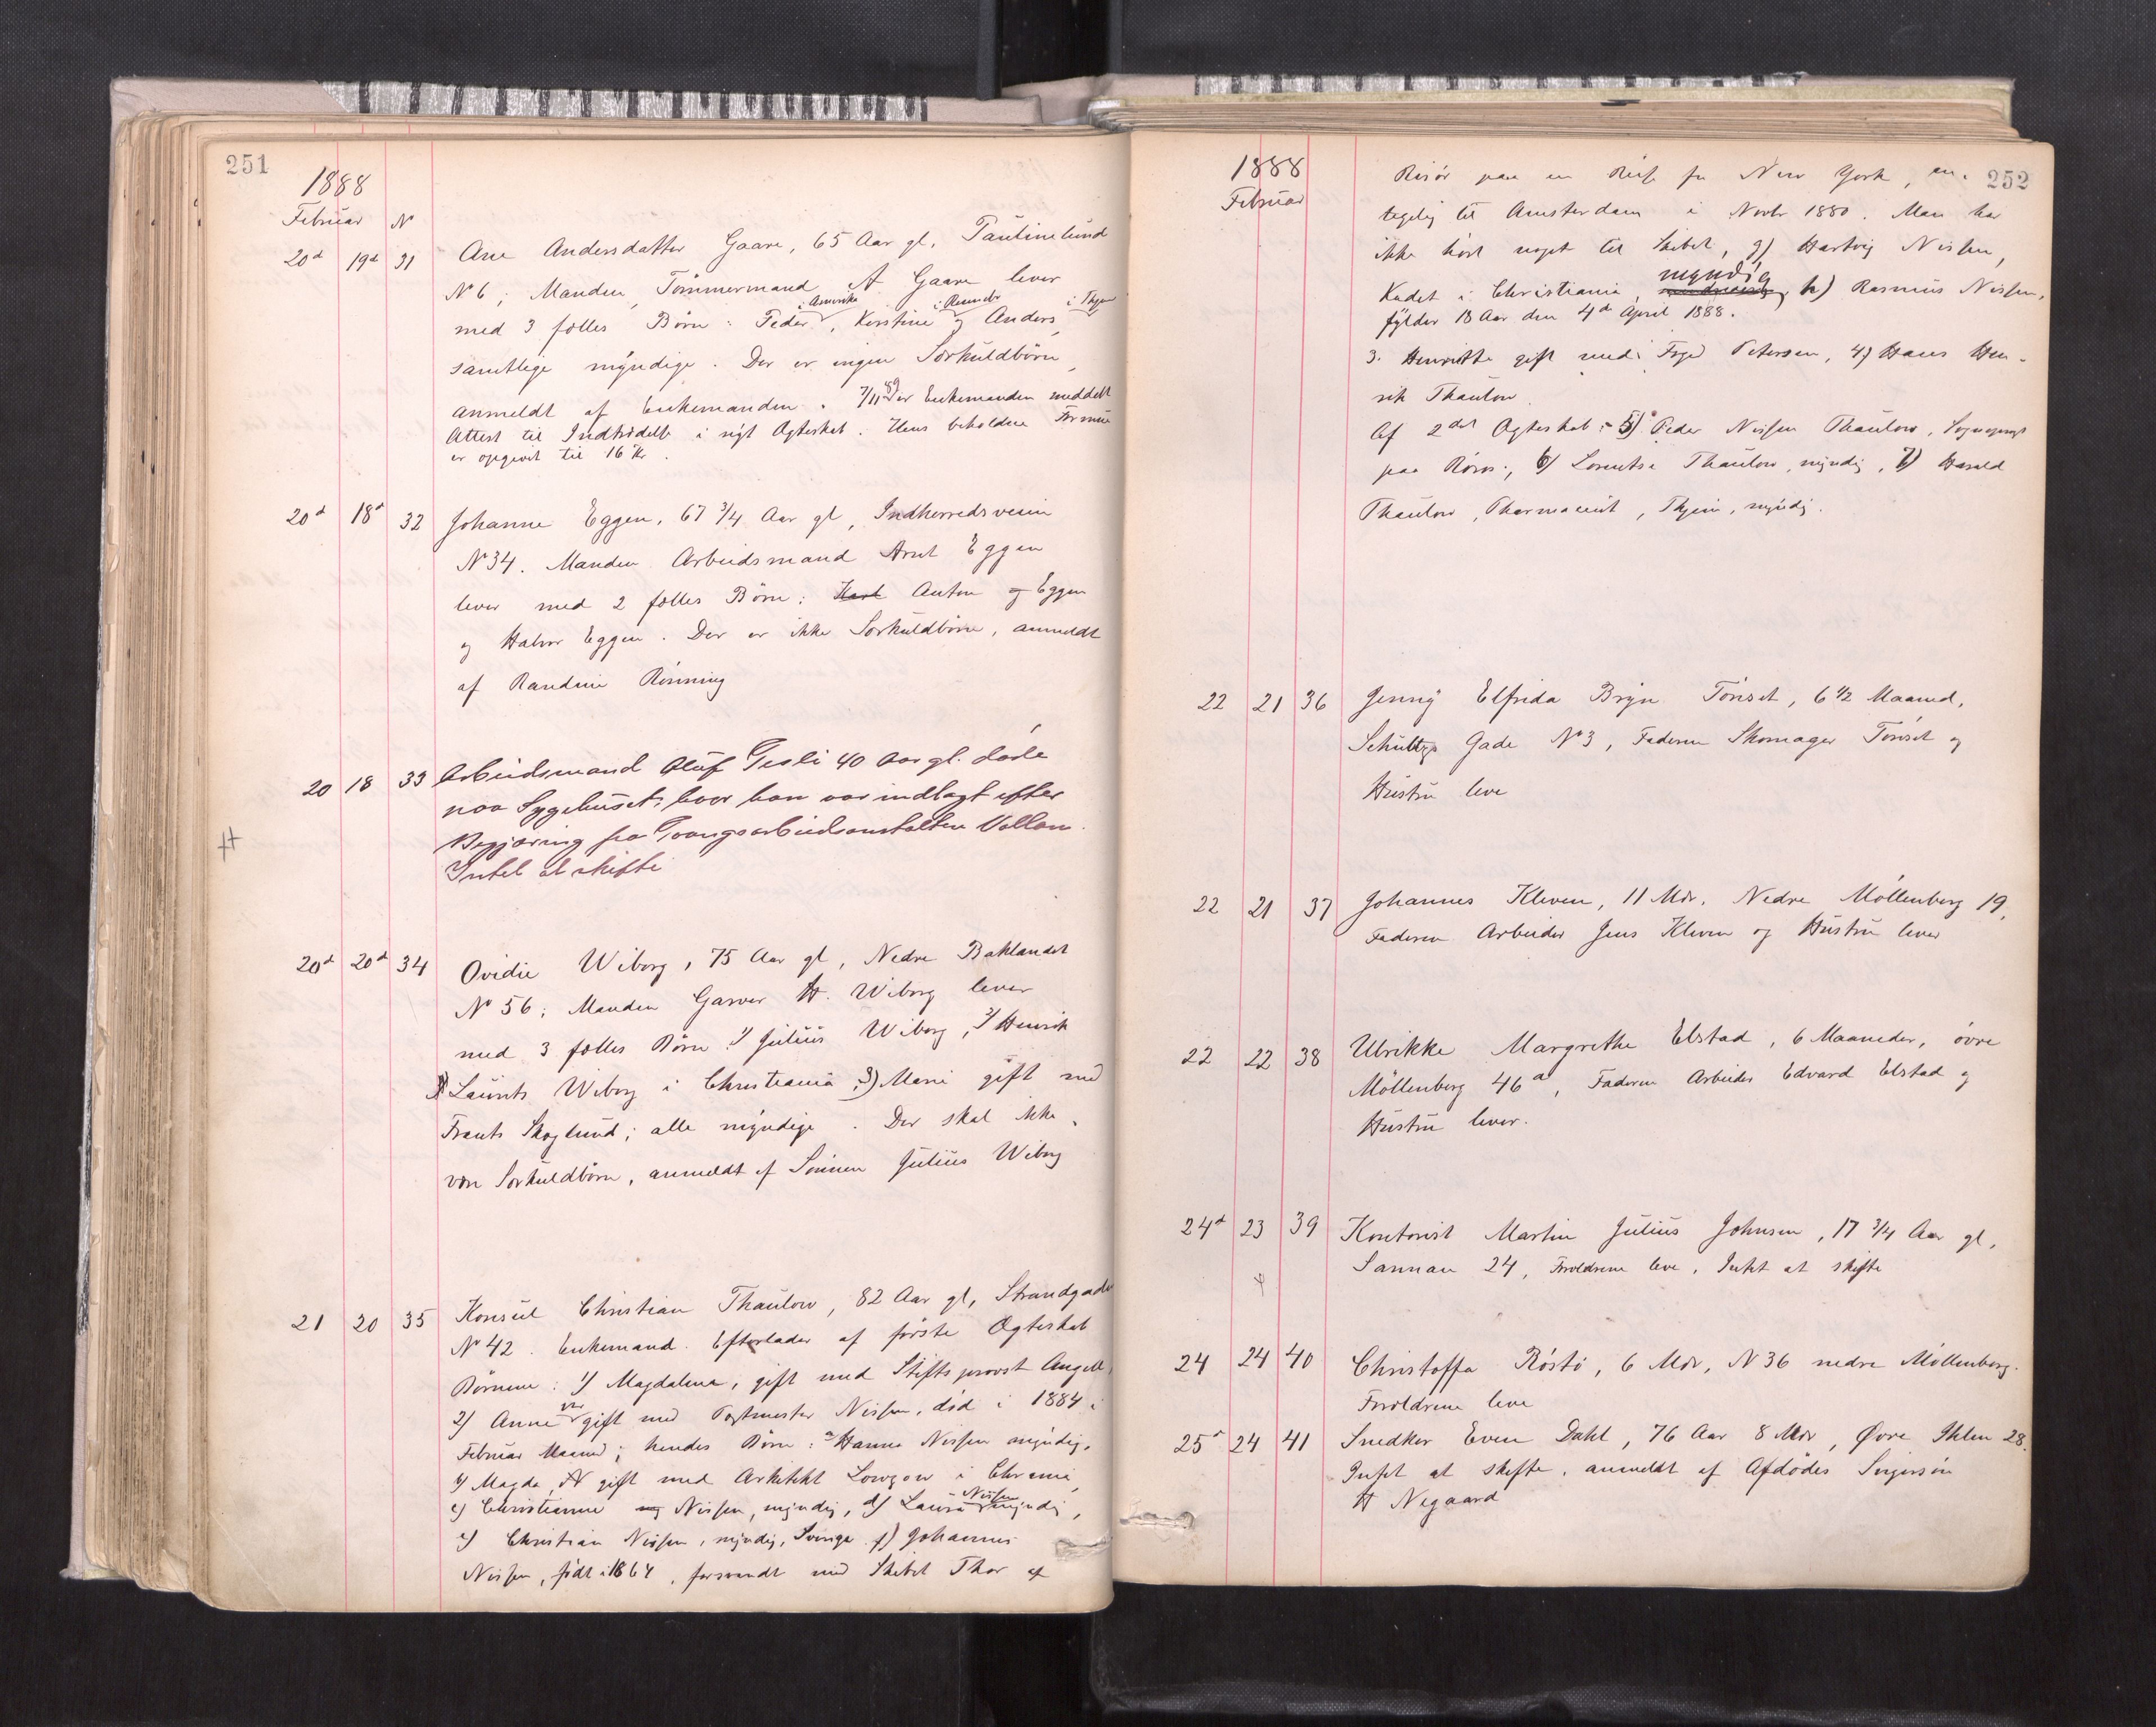 251
1888
Februar N
20d 19d 31 Ane Andersdatter Gaare, 65 Aar gl, Paulinelund
No 6; Manden Tömmermand A Gaare lever
i Amerika i Thjem
med 3 fælles Börn: Peder, Kerstine og Anders
samtlige myndige. Der er ingen Særkuldbörn
anmeldt af Enkemanden. 7/11 89 er Enkemanden meddelt
Attest til Indtrædelse i nyt Ægteskab. Hens beholdne Formue
er opgivet til 16 Kr.
20d 18d 32 Johanne Eggen, 67 3/4 Aar gl, Indherredsveien
No 34. Manden Arbeidsmand Arnt Eggen
lever med 2 fælles Börn: Karl Anton og Eggen
og Halvor Eggen. Der er ikke Særkuldbörn, anmeldt
af Randine Rönning
20 18 33 Arbeidsmand Oluf Tesli 40 Aar gl. døde
paa Sygehuset, hvor han var indlagt efter
Begjæring fra Tvangsarbeidsanstalten Vollan.
Intet at skifte
20d 20d 34 Ovidie Wiborg, 75 Aar gl, Nedre Baklandet
No 56; Manden Garver H. Wiborg lever
med 3 fælles Börn 1) Julius Wiborg, 2) Henrik
Laurits Wiborg i Christiania, 3) Marie gift med
Frants Skoglund; alle myndige. Der skal ikke
være Særkuldbörn, anmeldt af Sönnen Julius Wiborg
21 20 35 Konsul Christian Thaulow, 82 Aar gl, Strandgaden
No 42. Enkemand. Efterlader af förste Ægteskab
Börnene: 1) Magdalena, gift med Stiftsprovst Angell,
2) Anne var gift med Postmester Nissen, död i 1884 i
Februar Maaned; hendes Börn: a Hanna Nissen myndig,
b) Magda, N gift med Arkitekt Lowzow i Chrania
c) Christianne Nissen, myndig, d) Laura Nissen myndig,
e) Christian Nissen, myndig, Sverige f) Johannes
Nissen, födt i 1864, forsvandt med Skibet Thor af
252
1888
Februar
Risör paa en Reise fra New York, an-
tagelig til Amsterdam i Novbr 1880. Man har
ikke hört noget til Skibet, g) Hartvig Nissen,
Kadet i Christiania, myndig h) Rasmus Nissen,
fylder 18 Aar den 4de April 1888.
3. Henriette gift med Petersen, 4) Hans Hen-
rik Thaulow
Af 2det Ægteskab: 5) Peder Nissen Thaulow, Sogneprest
paa Röros, 6) Lorentse Thaulow, myndig, 7) Harald
Thaulow, Pharmaceut, Thjem, myndig.
22 21 36 Jenny Elfrida Bryn Tönset, 6 1/2 Maaned,
Schultzs Gade No 3, Faderen Skomager Tönset og
Hustru leve
22 21 37 Johannes Kleven, 11 Mdr. Nedre Möllenberg 19,
Faderen Arbeider Jens Kleven og Hustru lever
22 22 38 Ulrikke Margrethe Elstad, 6 Maaneder, övre
Möllenberg 46a, Faderen Arbeider Edvard Elstad og
Hustru lever.
24d 23 39 Kontorist Martin Julius Johnsen, 17 3/4 Aar gl,
Sannan 24, Forældrene leve. Intet at skifte
24 24 40 Christoffa Röstö, 6 Mdr, N 36 nedre Möllenberg.
Forældrene leve
25d 24 41 Snedker Even Dahl, 76 Aar 8 Mdr, Øvre Ihlen 28.
Intet at skifte. anmeldt af Afdödes Svigersön
H Negaard